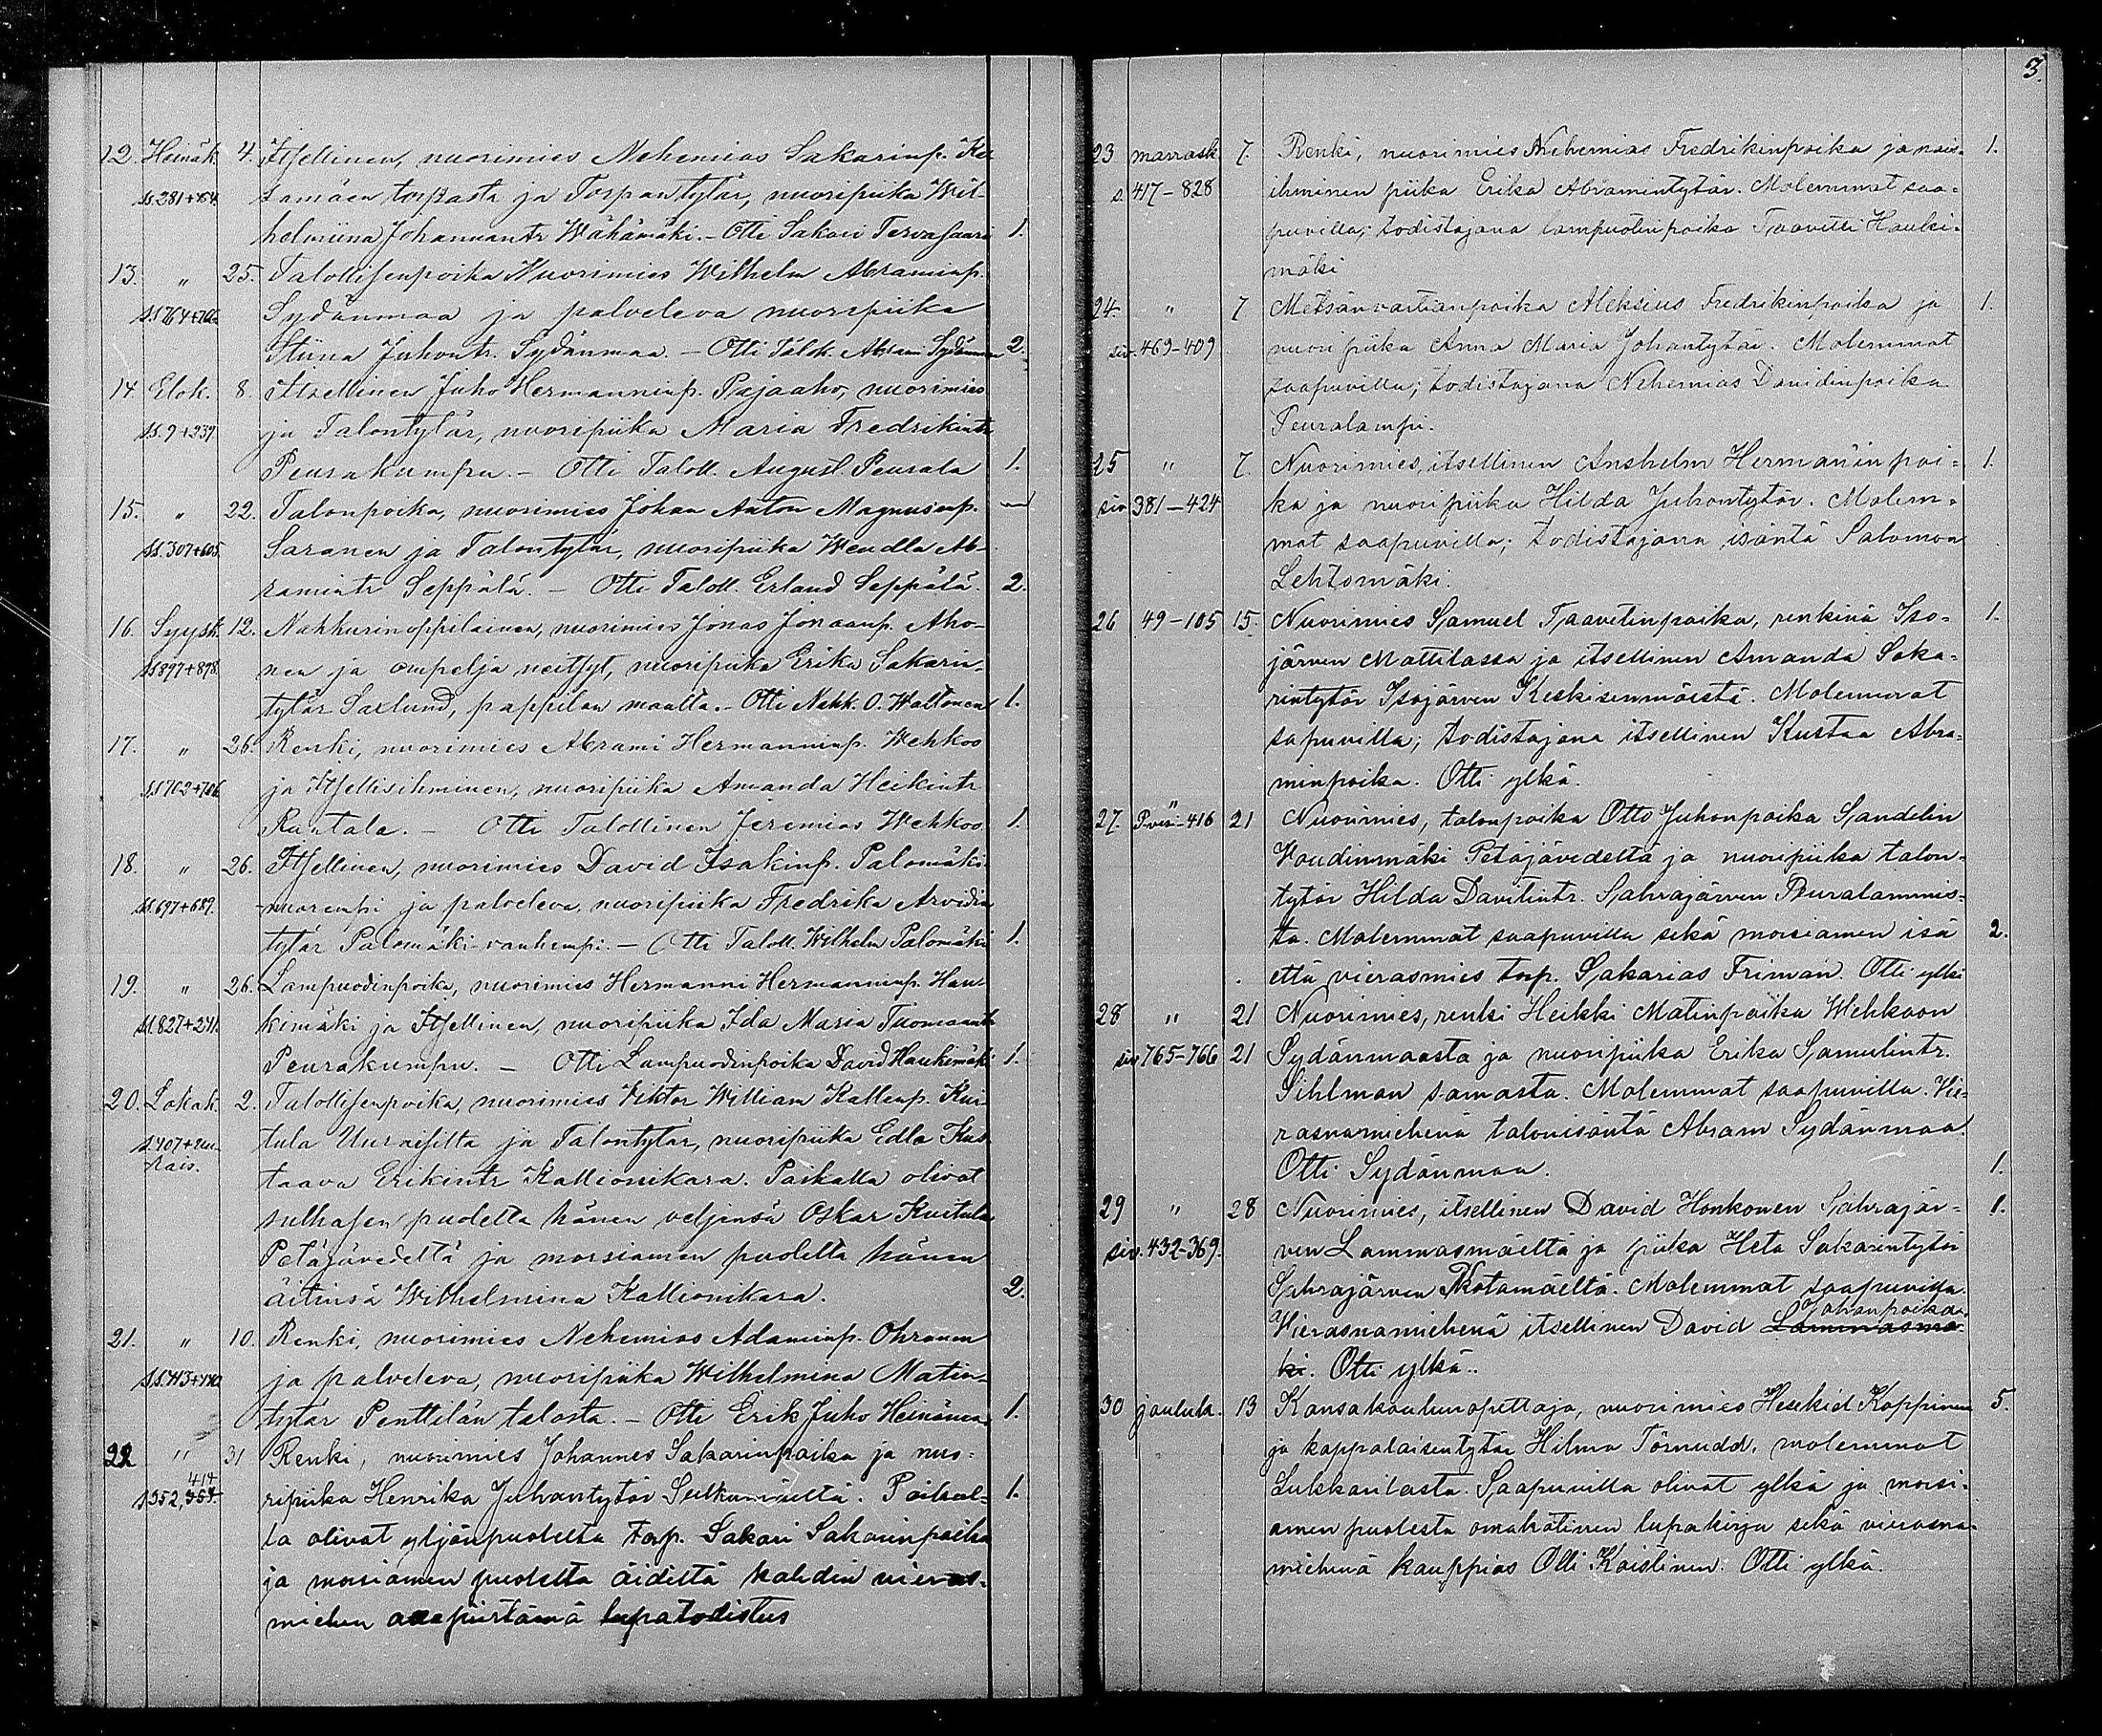 3.
12. Heinäk. 4. Itsellinen, nuorimies Nehemias Sakarinp. Ke-
ss. 281+ tamäen torpasta ja Torpantytär, nuoripiika Wil-
helmiina Johanantr Wähämäki. – Otti Sakari Tervasaari 1.
13. " 25. Talollisenpoika Nuorimies Wilhelm Abraminp.
ss. 764+766 Sydänmaa ja palveleva nuoripiika
Stiina Juhontr. Sydänmaa. – Otti Talok. Abram Sydänmaa 2.
14 Elok. 8. Itsellinen Juho Hermanninp. Pajaaho, nuorimies
ss. 9+239. ja Talontytär, nuoripiika Maria Fredrikintr
Peurakumpu. – Otti Taloll. August Peurala 1.
15. " 22. Talonpoika, nuorimies Johan Anton Magnusinp.
ss. 307+605. Saranen ja Talontytär, nuoripiika Wendla Ab-
ramintr Seppälä. – Otti Taloll. Erland Seppälä. 2.
16. Syysk. 12. Nahkurinoppilainen, nuorimies Jonas Jonaanp. Aho-
ss 897+898. nen ja ompelja neitsyt, nuoripiika Erika Sakarin-
tytär Saxlund, pappilan maalta. – Otti Nahk. O. Waltonen 1.
17. " 26. Renki, nuorimies Abrami Hermanninp. Wehkoo
ss 702+706 ja Itsellisihminen, nuoripiika Amanda Heikintr
Rantala. – Otti Talollinen Jeremias Wehkoo 1.
18. " 26. Itsellinen, nuorimies David Isakinp. Palomäki-
ss. 697+689. nuorempi ja palveleva, nuoripiika Fredrika Arvidin
tytär Palomäki-vanhempi. – Otti Taloll. Wilhelm Palomäki 1.
19. " 26. Lampuodinpoika, nuorimies Hermanni Hermanninp. Hau-
ss. 827+241. kimäki ja Itsellinen, nuoripiika Ida Maria Tuomaantr
Peurakumpu. – Otti Lampuodinpoika David Haukimäki 1.
20. Lokak. 2. Talollisenpoika, nuorimies Viktor William Kallenp. Kui-
s. 407+Uu- tula Uuraisilta ja Talontytär, nuoripiika Edla Kus-
rais. taava Erikintr Kallionikara. Paikalla olivat
sulhasen puolelta hänen veljensä Oskar Kuitula
Petäjävedeltä ja morsiamen puolelta hänen
äitinsä Wilhelmina Kallionikara. 2.
21. " 10. Renki, nuorimies Nehemias Adaminp. Ohranen
ja palveleva, nuoripiika Wilhelmina Matin-
tytär Penttilän talosta. – Otti Erik Juho Heinämaa 1.
22 " 31 Renki, nuorimies Johannes Sakarinpoika ja nuo-
414
s 352, ripiika Henrika Juhantytär Sulkumäeltä. Paikal- 1.
la olivat yljänpuolelta torp. Sakari Sakarinpoika
ja morsiamen puolelta äidiltä kahden vieras-
miehen lupatodistus
23 marrask. 7. Renki, nuorimies Nehemias Fredrikinpoika ja nais- 1.
s. 417–828 ihminen piika Erika Abramintytär. Molemmat saa-
puvilla; todistajana lampuotinpoika Taavitti Hauki-
mäki
24 " 7 Metsänvartianpoika Aleksius Fredrikinpoika ja 1.
siv. 469–409 nuoripiika Anna Maria Johantytär. Molemmat
saapuvilla; todistajana Nehemias Davidinpoika
Peuralampi.
25 " 7. Nuorimies, itsellinen Anshelm Hermaninpoi- 1.
siv 381–424 ka ja nuoripiika Hilda Juhontytär. Molem-
mat saapuvilla; todistajana isäntä Salomon
Lehtomäki.
26 49–105 15. Nuorimies Samuel Taavetinpoika, renkinä Iso- 1.
järven Mattilassa ja itsellinen Amanda Saka-
rintytär Isojärven Keskisenmäestä. Molemmat
sapuvilla; todistajana itsellinen Kustaa Abra-
minpoika. Otti ylkä.
27. P.vesi–416 21 Nuorimies, talonpoika Otto Juhonpoika Sandelin
Woudinmäki Petäjävedeltä ja nuoripiika talon-
tytär Hilda Davitintr. Sahrajärven Peuralammis-
ta. Molemmat saapuvilla sekä morsiamen isä 2.
että vierasmies torp. Sakarias Friman. Otti ylkä
28 " 21 Nuorimies, renki Heikki Matinpoika Wehkoon
siv 765–766 21 Sydänmaasta ja nuoripiika Erika Samulintr.
Sihlman samasta. Molemmat saapuvilla. Vie-
rasnamiehenä talonisäntä Abram Sydänmaa.
Otti Sydänmaa. 1.
29 " 28 Nuorimies, itsellinen David Honkonen Sahrajär- 1.
siv. 432–369. ven Lammasmäeltä ja piika Heta Sakarintytär
Sahrajärven Kotamäeltä. Molemmat saapuvilla.
Johanpoika
Vierasnamiehenä itsellinen David Lammasmä-
ki. Otti ylkä..
30 jouluk. 13 Kansakoulunopettaja, nuorimies Hesekiel Koppinen 5.
ja kappalaisentytär Hilma Törnudd, molemmat
Lukkarilasta. Saapuvilla olivat ylkä ja morsi-
amen puolesta omakätinen lupakirja sekä vierasna-
miehenä kauppias Olli Kaislinen. Otti ylkä.